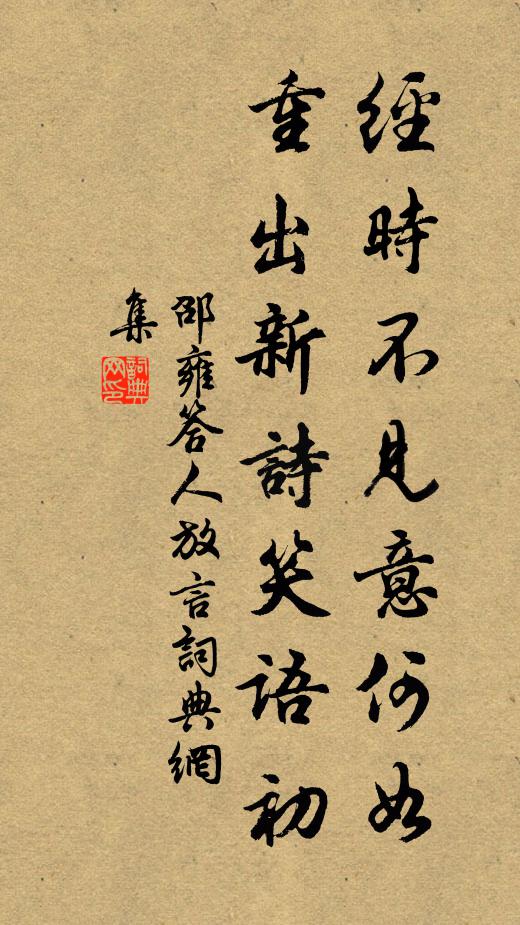 經時不見意何如
重出新詩笑語初
邵雍答人放言詞典網
集
詞典网印